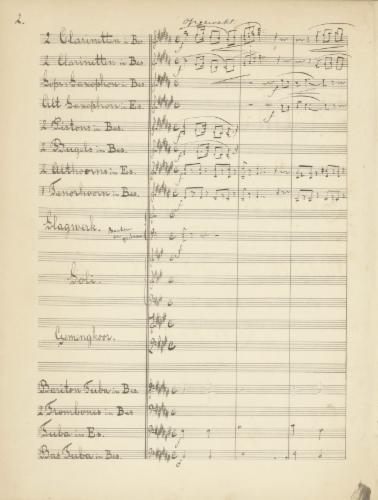 2.
Opgewekt
2 Clarinetten in Bes.
2 Clarinetten in Bes.
Sopr: Saxophon in Bes.
Alt Saxophon in Es.
2 Pistons in Bes.
2 Bugels in Bes.
2 Althoorns in Es.
1 Tenorhoorn in Bes.
Slagwerk.
Soli.
Gemengkoor.
Bariton Tuba in Bes
2 Trombones in Bes
Tuba in Es.
Bas Tuba in Bes.